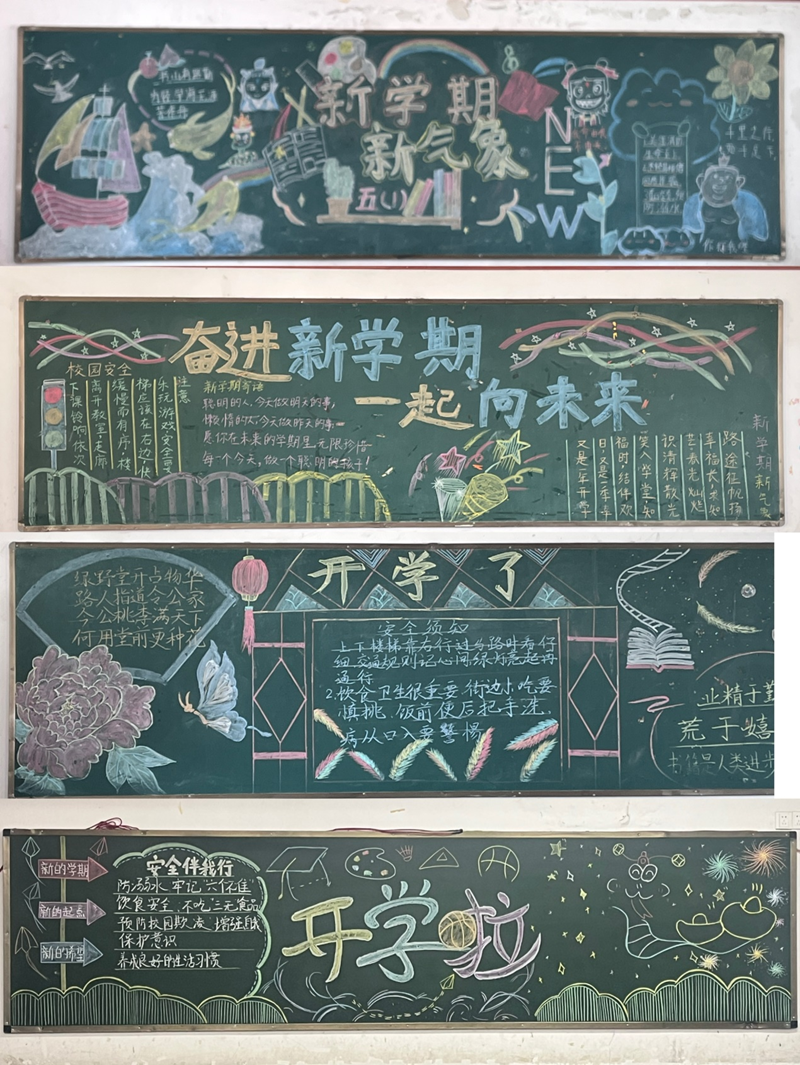 书山有路勤
为径学海无涯
苦作舟
新学期
新气象
五(1)
NEW
奋进新学期
一起向未来
校园安全
下课铃响依次
离开教室,走廊
缓慢而有序,楼
梯应该在右边,快
乐玩游戏安全要
注意
新学期寄语
聪明的人,今天做明天的事;
懒惰的人,今天做昨天的事;
愿你在未来的学期里,无限珍惜
每一个今天,做一个聪明的孩子!
新学期新气象
路途征帆扬
幸福长未知
芒春老灿灿
识清辉散光
笑入学堂知
福时,结伴欢
日,又是一季幸
又是一年开学
开学了
绿野堂开占物华
路人指道令公家
令公桃李满天下
何用堂前更种花
安全须知
上下楼梯靠右行过马路时看仔
细,交通规则记心间绿灯亮起再
通行
2.饮食卫生很重要,街边小吃要
慎挑,饭前便后把手洗,
病从口入要警惕
业精于勤
荒于嬉
书籍是人类进步
新的学期
新的起点
新的希望
安全伴我行
防溺水 牢记"六不准"
饮食安全、不吃"三无食品"
预防校园欺凌、增强自我
保护意识
养成良好的生活习惯
开学啦